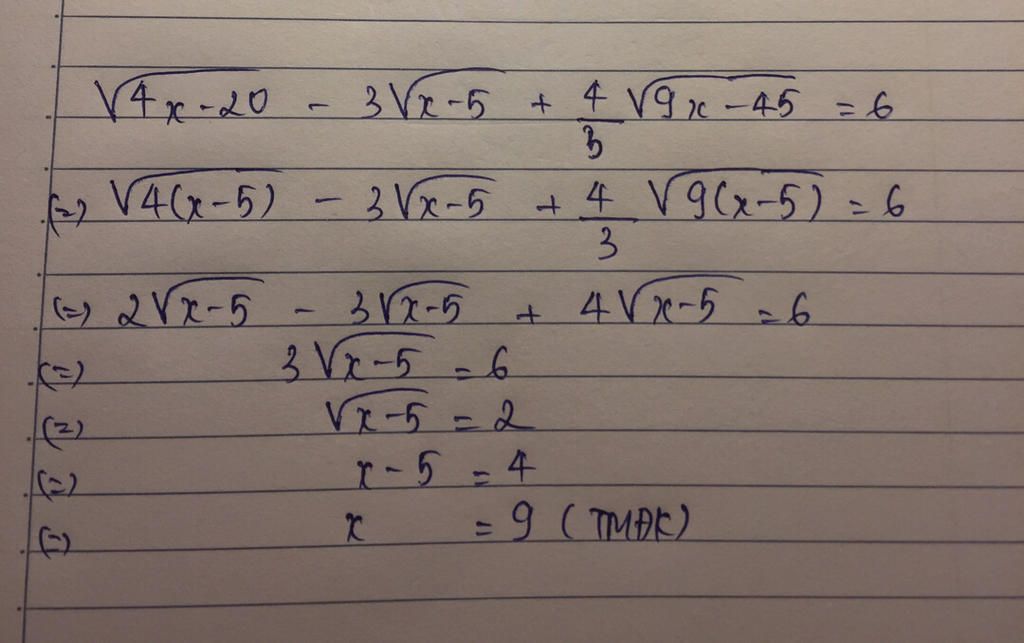 √4x-20 - 3√x-5 + 4/3 √9x-45 = 6
(=) √4(x-5) - 3√x-5 + 4/3 √9(x-5) = 6
(=) 2√x-5 - 3√x-5 + 4√x-5 = 6
(=) 3√x-5 = 6
(=) √x-5 = 2
(=) x-5 = 4
(=) x = 9 (TMĐK)